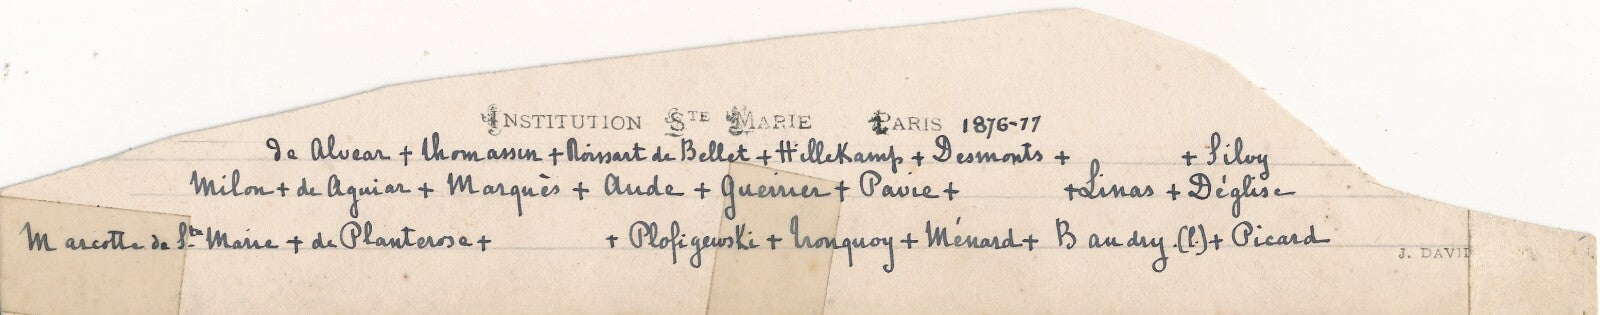 INSTITUTION STE MARIE PARIS 1876-77
de Alvear + Thomassin + Noissart de Bellet + HilleKamp + Desmonts + + Silvy
Milon + de Aguiar + Marquès + Aude + Guerrier + Pavie + + Linas + Déglise
Marcotte de Ste Marie + de Planterose + + Plofigewski + Tronquoy + Ménard + Baudry.(l.) + Picard
J. DAVID